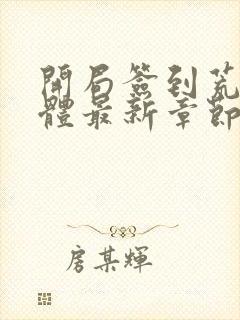 開局簽到荒
體最新章節
房某輝